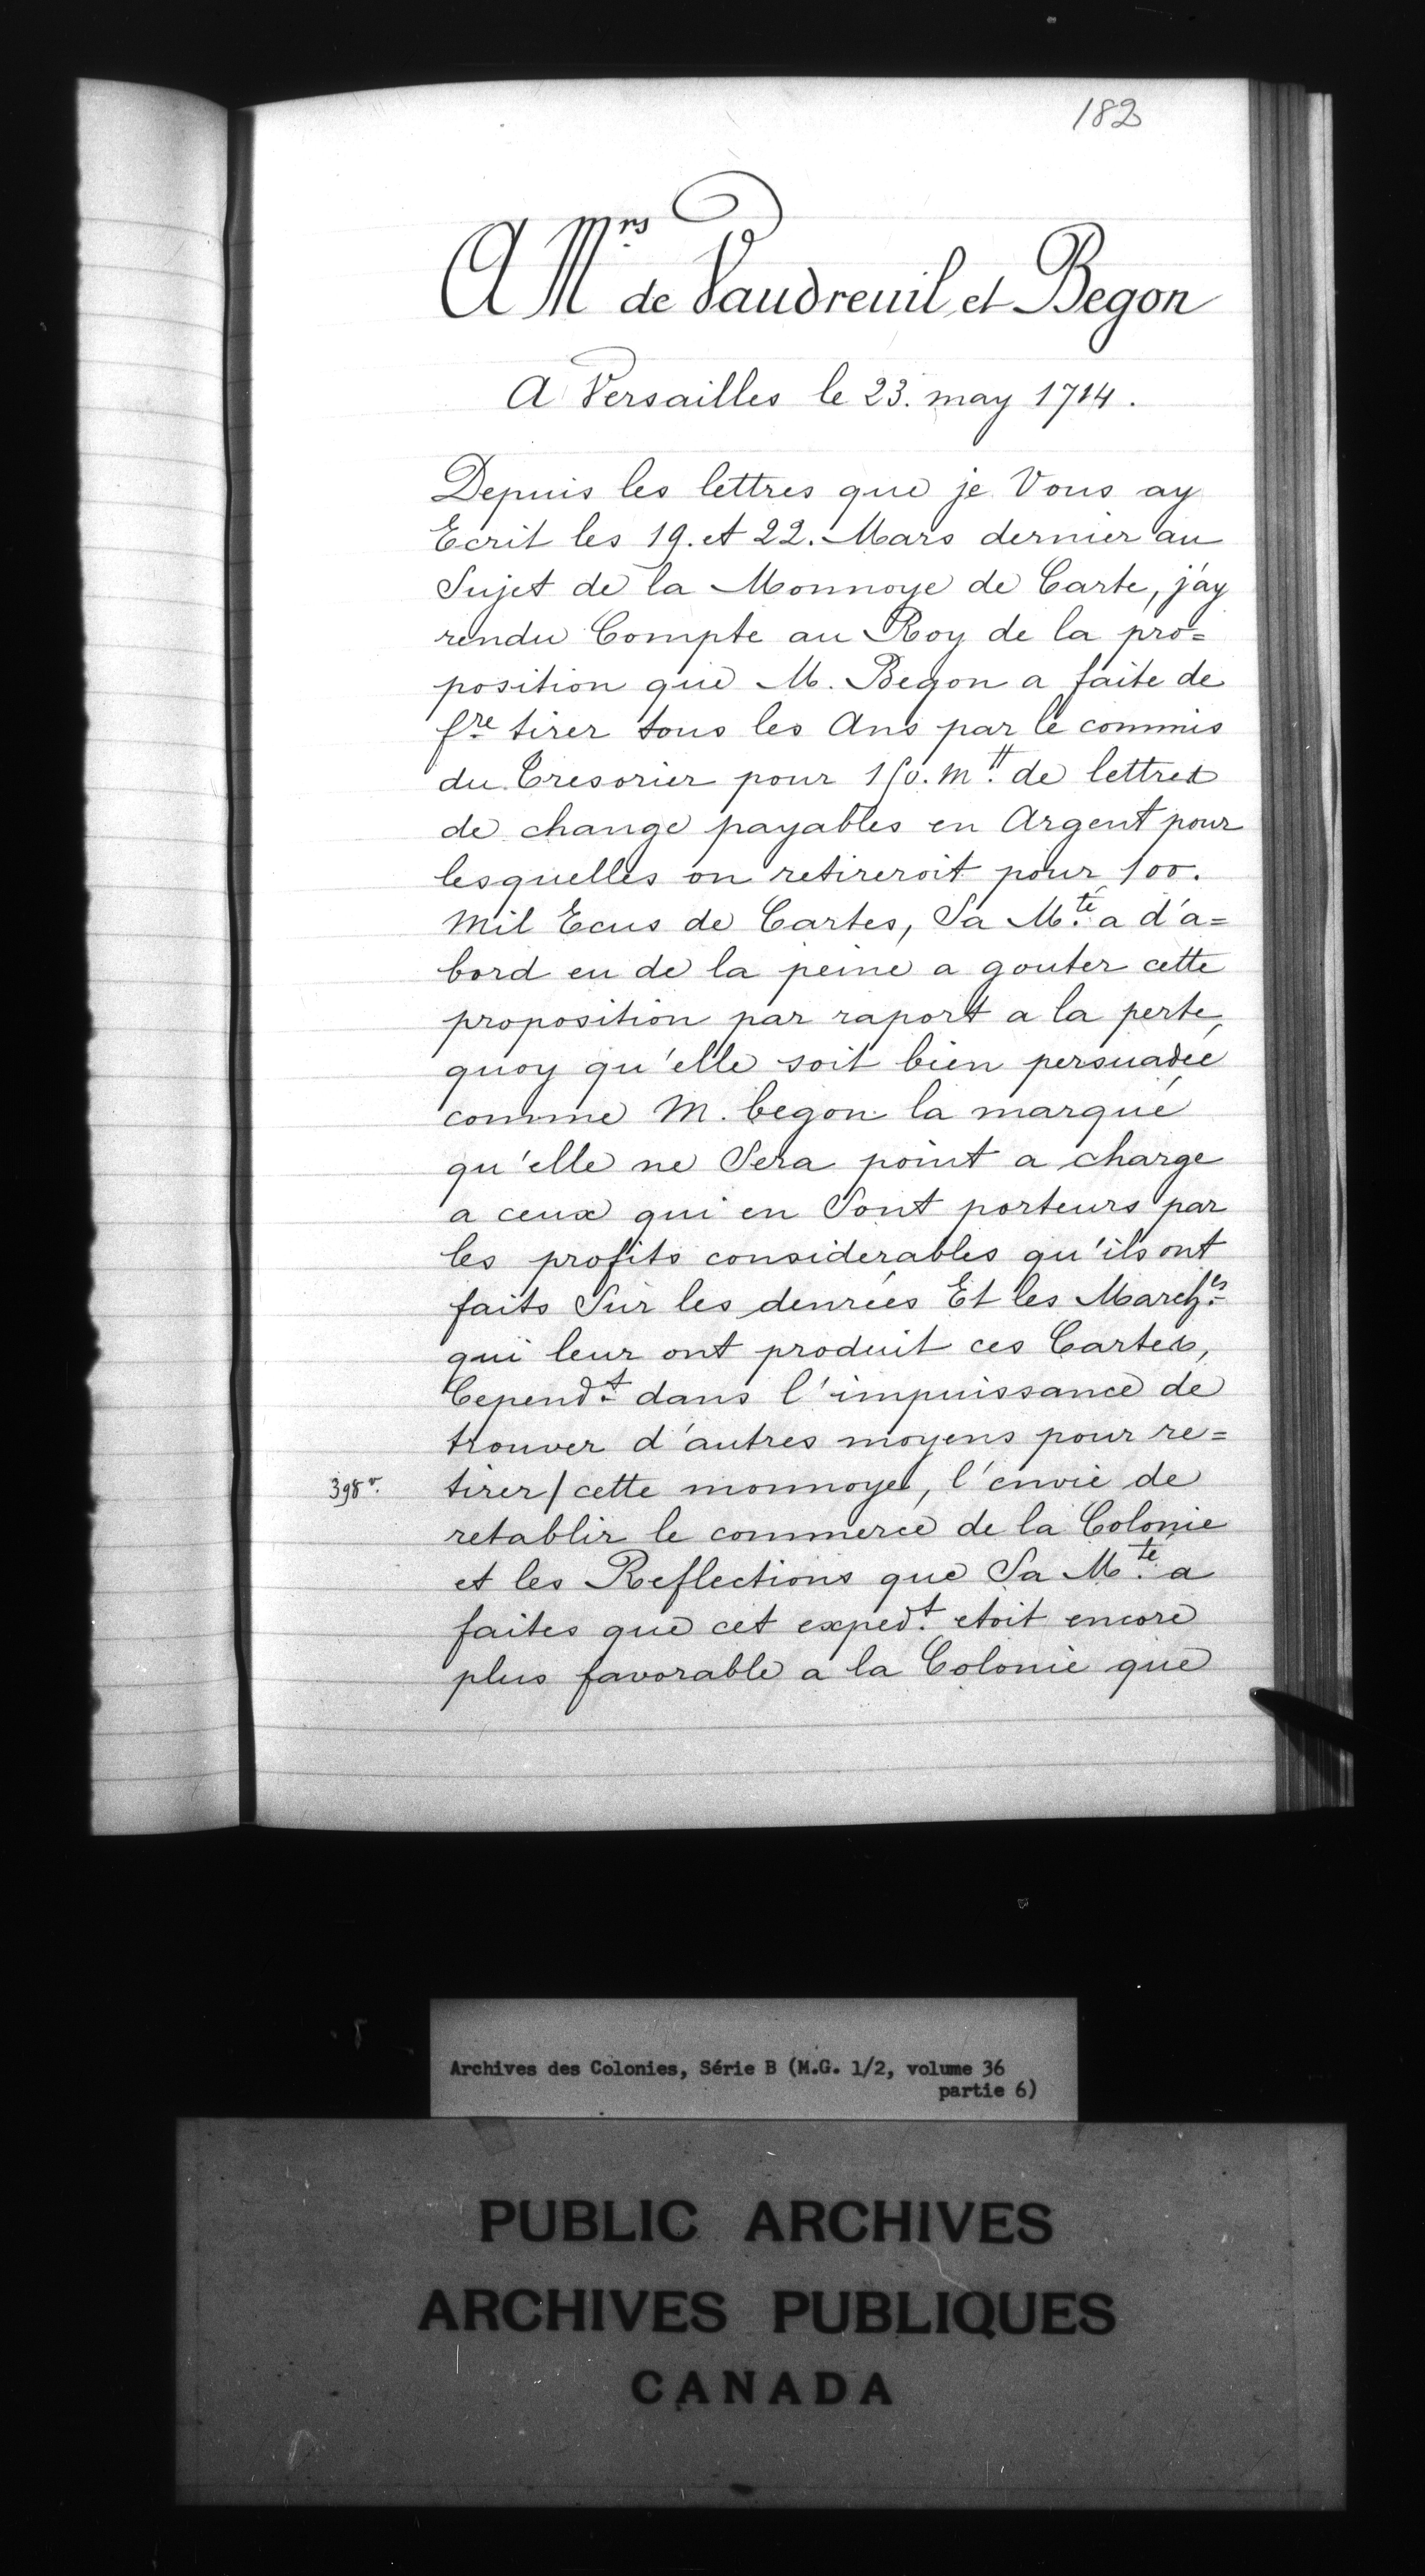 182
A Mrs de Vaudreuil et Begon
A Versailles le 23. may 1714.
Depuis les lettres que je Vous ay
Ecrit les 19. et 22. Mars dernier au
Sujet de la Monnoye de Carte, j'ay
rendu Compte au Roy de la pro=
position que M. Begon a faite de
fre tirer tous les Ans par le commis
du Tresorier pour 150. m.tt de lettres
de change payables en Argent pour
lesquelles on retireroit pour 100.
Mil Ecus de Cartes, Sa M.té a d'a=
bord eu de la peine a gouter cette
proposition par raport a la perte,
quoy qu'elle soit bien persuadée
comme M. begon la marqué
qu'elle ne Sera point a charge
a ceux qui en Sont porteurs par
les profits considerables qu'ils ont
faits Sur les denrées Et les March.es
qui leur ont produit ces Cartes,
Cepend.t dans l'impuissance de
trouver d'autres moyens pour re=
398v. tirer / cette monnoye, l'envie de
retablir le commerce de la Colonie
et les Reflections que Sa M.te a
faites que cet exped.t etoit encore
plus favorable a la Colonie que
Archives des Colonies, Série B (M.G. 1/2, volume 36
partie 6)
PUBLIC ARCHIVES
ARCHIVES PUBLIQUES
CANADA